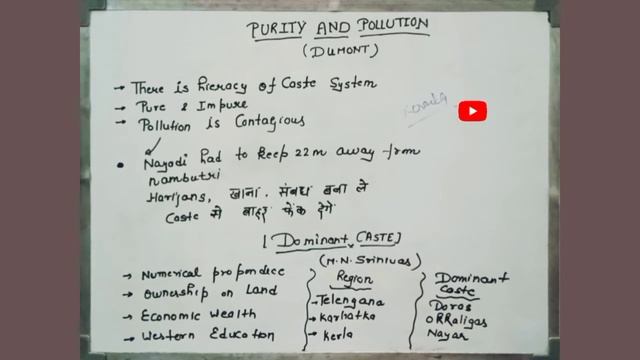 PURITY AND POLLUTION
(DUMONT)
→ There is hieracy of Caste System
→ Pure & Impure
→ Pollution is Contagious
Kerala
• Nayodi had to keep 22m away from
nambutri
Harijans, खाना. संबध बना ले
Caste से बाहर फेंक देंगे
[Dominant CASTE]
(M.N. Srinivas)
→ Numerical propondice
→ Ownership on Land
→ Economic Wealth
→ Western Education
Region
→ Telengana
→ Karnatka
→ Kerla
Dominant
Caste
Doras
ORRaligas
Nayar